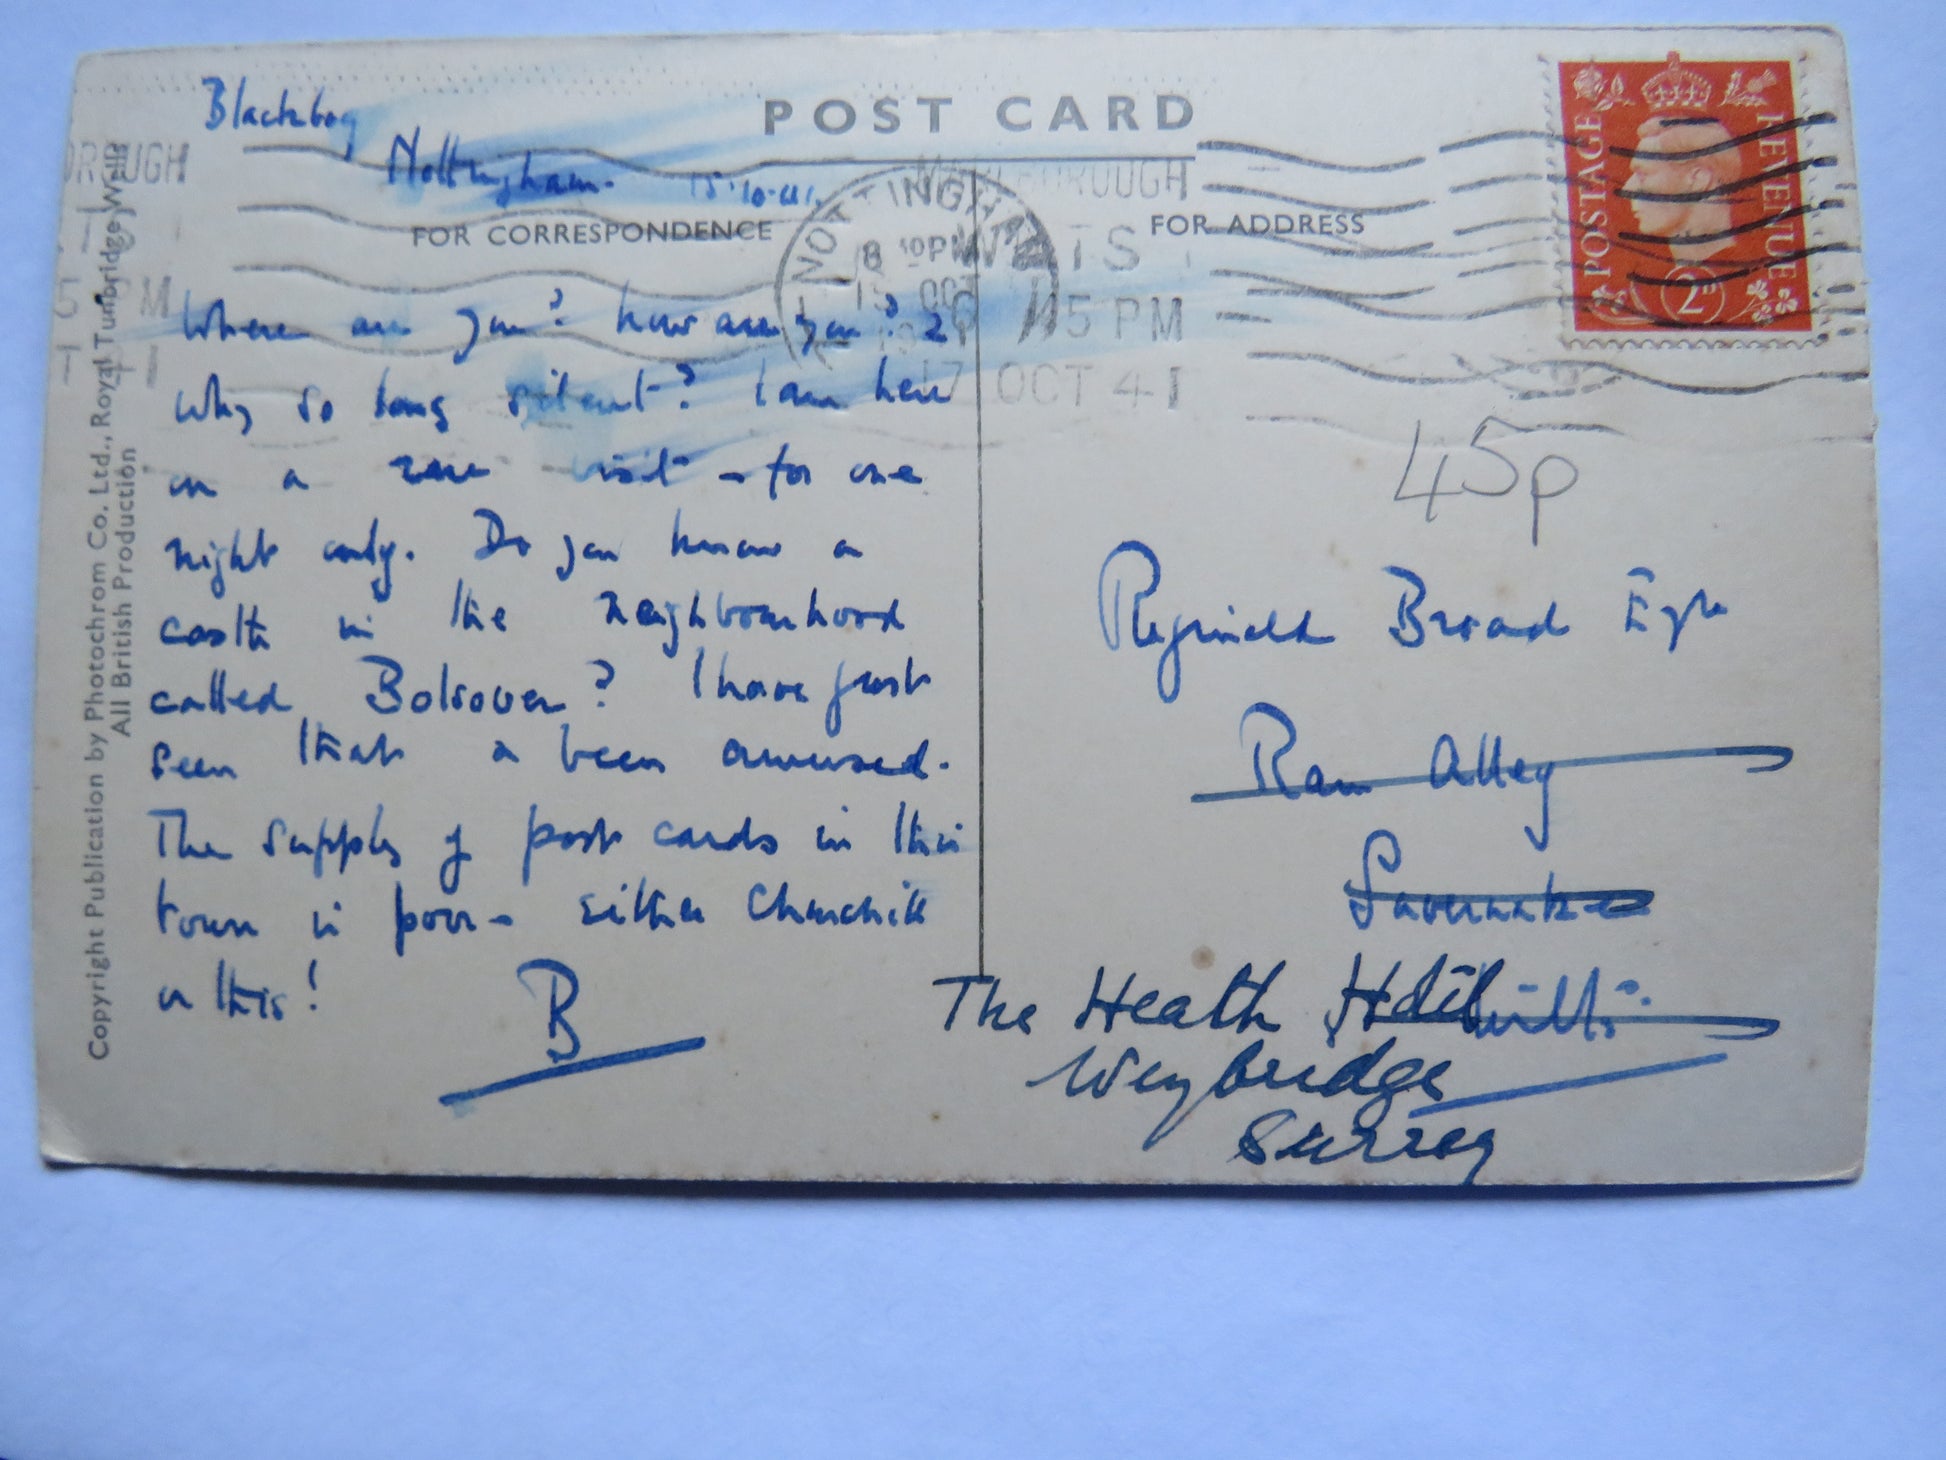 POST CARD
Nottingham. 15.10.41.
FOR CORRESPONDENCE
FOR ADDRESS
Where are you? how are you? &
why so long silent? I am here
on a rare visit - for one
night only. Do you know a
castle in the neighbourhood
called Bolsover? I have just
seen that & been amused.
The supply of post cards in this
town is poor - either Churchill
or this!
B
Copyright Publication by Photochrom Co. Ltd., Royal Tunbridge Wells
All British Production
NOTTINGHAM
8 10 PM
15 OCT
MARLBOROUGH
WILTS
45 PM
17 OCT 41
POSTAGE REVENUE
2D
45p
Reginald Broad Esq
Ram Alley
Savernake
Wilts.
The Heath Hotel
Weybridge
Surrey